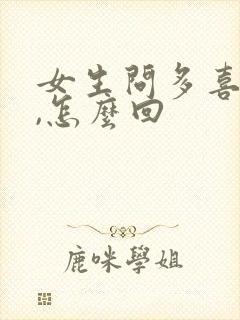 女生問多喜
,怎麼回
鹿咪學姐